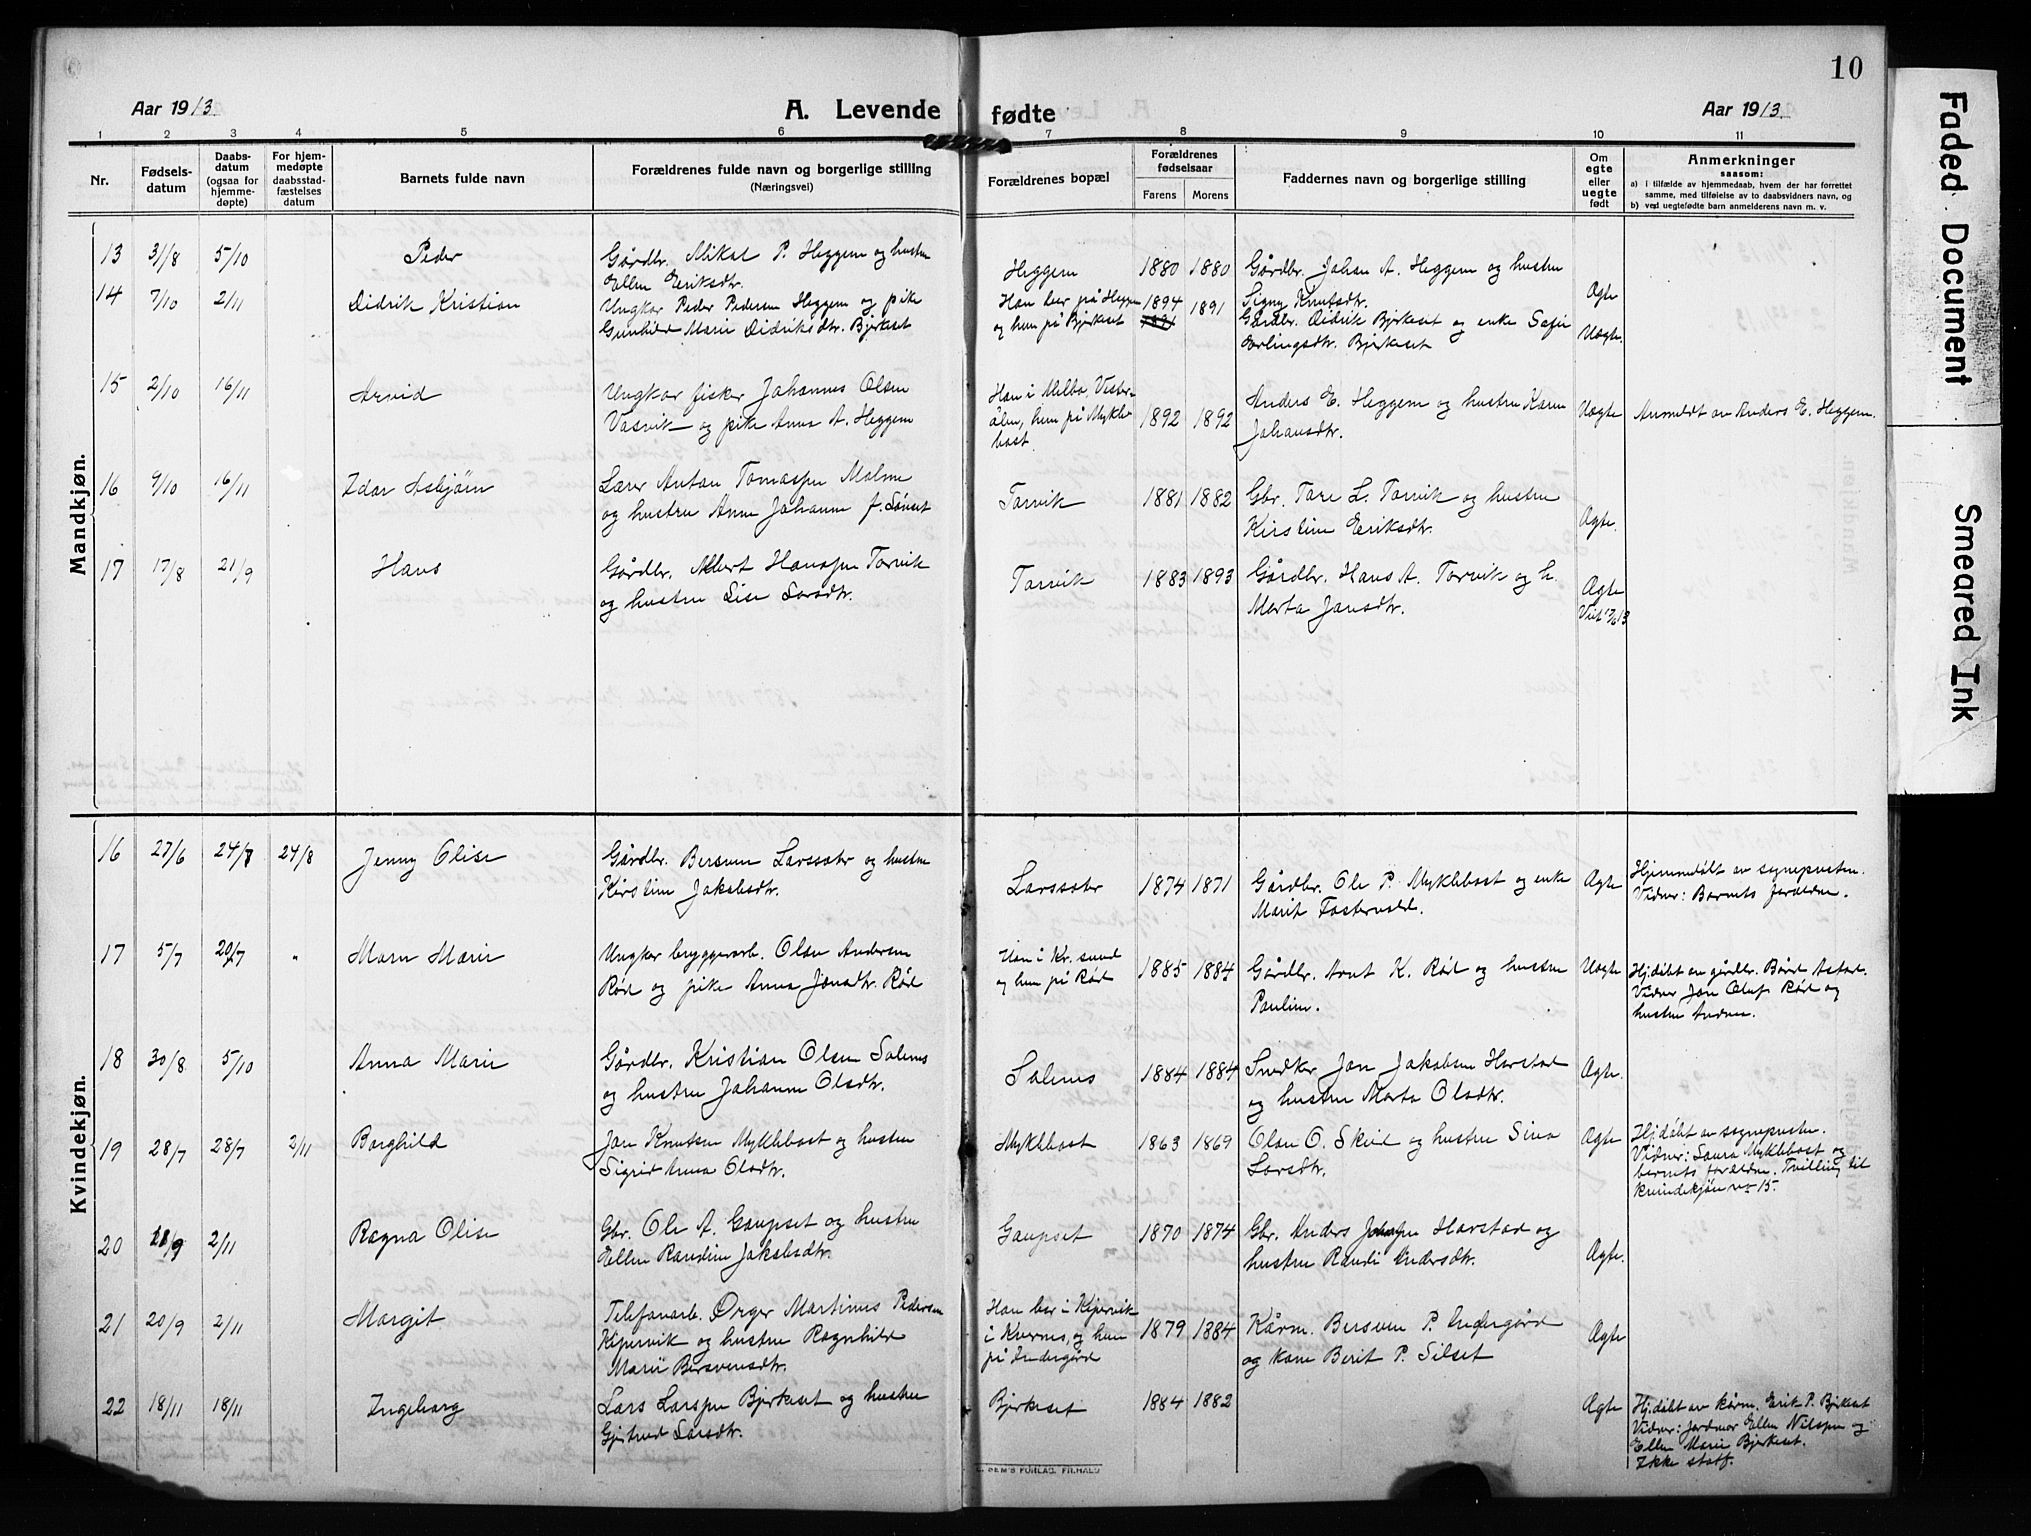 10
Aar 1913.
A. Levende fødte
Aar 1913.
1 2 3 4 5 6 7 8 9 10 11
Nr.
Fødsels-
datum
Daabs-
datum
(ogsaa for
hjemme-
døpte)
For hjem-
medøpte
daabsstad-
fæstelses
datum
Barnets fulde navn
Forældrenes fulde navn og borgerlige stilling
(Næringsvei)
Forældrenes bopæl
Forældrenes
fødselsaar
Farens Morens
Faddernes navn og borgerlige stilling
Om
egte
eller
uegte
født
Anmerkninger
saasom:
a) i tilfælde av hjemmedaab, hvem der har forrettet
samme, med tilføielse av to daabsvidners navn, og
b) ved uegtefødte barn anmelderens navn m. v.
Mandkjøn.
13 31/8 5/10 Peder
Gårdbr. Mikal P. Heggem og hustru
Ellen Eriksdtr.
Heggem 1880 1880
Gårdbr. Johan A. Heggem og hustru
Signy Knutsdtr.
Ægte
14 7/10 2/11 Didrik Kristian
Ungkar Peder Pedersen Heggem og pike
Gunhild Marie Didriksdtr. Bjerkeset
Han bor på Heggem
og hun på Bjerkeset
1894 1891
Gårdbr. Didrik Bjerkeset og enke Sofie
Erlingsdtr. Bjerkeset
Uægte.
15 2/10 16/11 Arvid
Ungkar fisker Johannes Olsen
Vasvik og pike Anna A. Heggem
Han i Melbo, Vester-
ålen, hun på Mykle-
bost
1892 1892
Anders E. Heggem og hustru Karen
Johansdtr.
Uægte
Anmeldt av Anders E. Heggem.
16 9/10 16/11 Idar Asbjørn
Lærer Anton Tomassen Malme
og hustru Anne Johanne f. Lønset
Torvik 1881 1882
Gbr. Tore L. Torvik og hustru
Kirstine Eriksdtr.
Ægte.
17 17/8 21/9 Hans
Gårdbr. Albert Hanssen Torvik
og hustru Lise Larsdtr.
Torvik 1883 1893
Gårdbr. Hans A. Torvik og h.
Marta Jonsdtr.
Ægte
Kvindekjøn.
16 27/6 24/8 24/8 Jenny Olise
Gårdbr. Bersven Larssæter og hustru
Kirstine Jakobsdtr.
Larssæter 1874 1871
Gårdbr. Ole P. Myklebost og enke
Marit Fostervold.
Ægte
Hjemmedøbt av sogneprsten.
Vidner: Barnets foræeldre.
17 5/7 20/7 " Maren Marie
Ungkar bryggerarb. Olav Andersen
Rød og pike Anna Jonsdtr. Rød
Han i Kr. sund
og hun på Rød
1885 1884
Gårdbr. Arnt K. Rød og hustru
Pauline.
Uægte
Hj.døbt av gårdbr. Bård Astad.
Vidner Jon Oluf Rød og
hustru Andrea.
18 30/8 5/10 Anna Marie
Gårdbr. Kristian Olsen Solenes
og hustru Johanne Olsdtr.
Solenes 1884 1884
Snedker Jon Jakobsen Harstad
og hustru Marta Olsdtr.
Ægte.
19 28/7 28/7 2/11 Borghild
Jon Knutsen Myklebost og hustru
Sigrid Anna Olsdtr.
Myklebost 1863 1869
Olav O. Skeid og hustru Sina
Larsdtr.
Ægte
Hj.døbt av sogneprsten.
Vidner: Laura Myklebost og
barnets foræeldre. Tvilling til
kvindekjøn no 15.
20 21/9 2/11 Ragna Olise
Gbr. Ole A. Gaupset og hustru
Ellen Randine Jakobsdtr.
Gaupset 1870 1874
Gbr. Anders Johnsen Harstad og
hustru Randi Andersdtr.
Ægte.
21 20/9 2/11 Margit
Telefonarb. Ørger Martinus Pedersen
Kipervik og hustru Ragnhild
Marie Bersvensdtr.
Han bor i Kipervik
i Kvernes, og hun
på Indergård
1879 1884
Kårm. Bersven P. Indergård
og kone Berit P. Silset
Ægte
22 18/11 18/11 Ingeborg
Lars Larssen Bjerkeset og hustru
Gjertrud Larsdtr.
Bjerkeset 1884 1882
Ægte
Hj.døbt av kårm. Erik P. Bjerkeset
Vidner: Jordmor Ellen Nilssen og
Ellen Marie Bjerkeset.
Ikke statf.
E. SEM'S FORLAG. FR.HALD
Faded Document
Smeared Ink